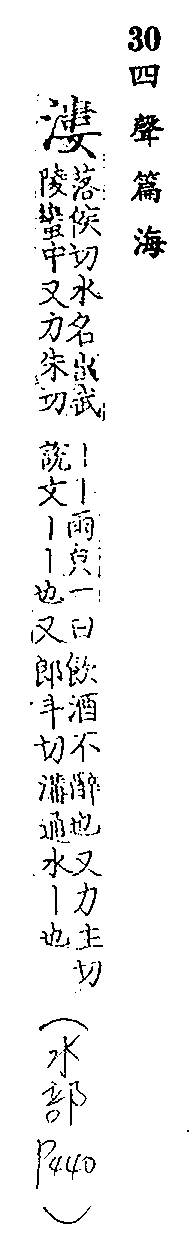 30四聲篇海
漊
落侯切水名出武
陵蠻中又力朱切
丨丨雨皃一曰飲酒不醉也又力主切
說文丨丨也又郎斗切溝通水丨也
（水部P440）